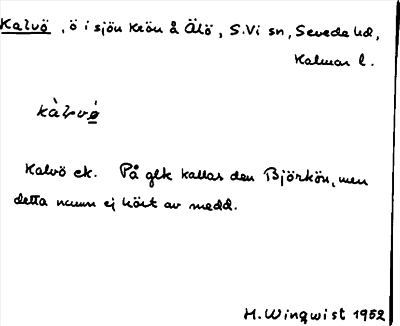 Kalvö, ö i sjön Krön å Älö, S.Vi sn, Sevede hd,
Kalmar l.
kàlvǿ
Kalvö ek. På glk kallas den Björkön, men
detta namn ej hört av medd.
H. Winqwist 1952